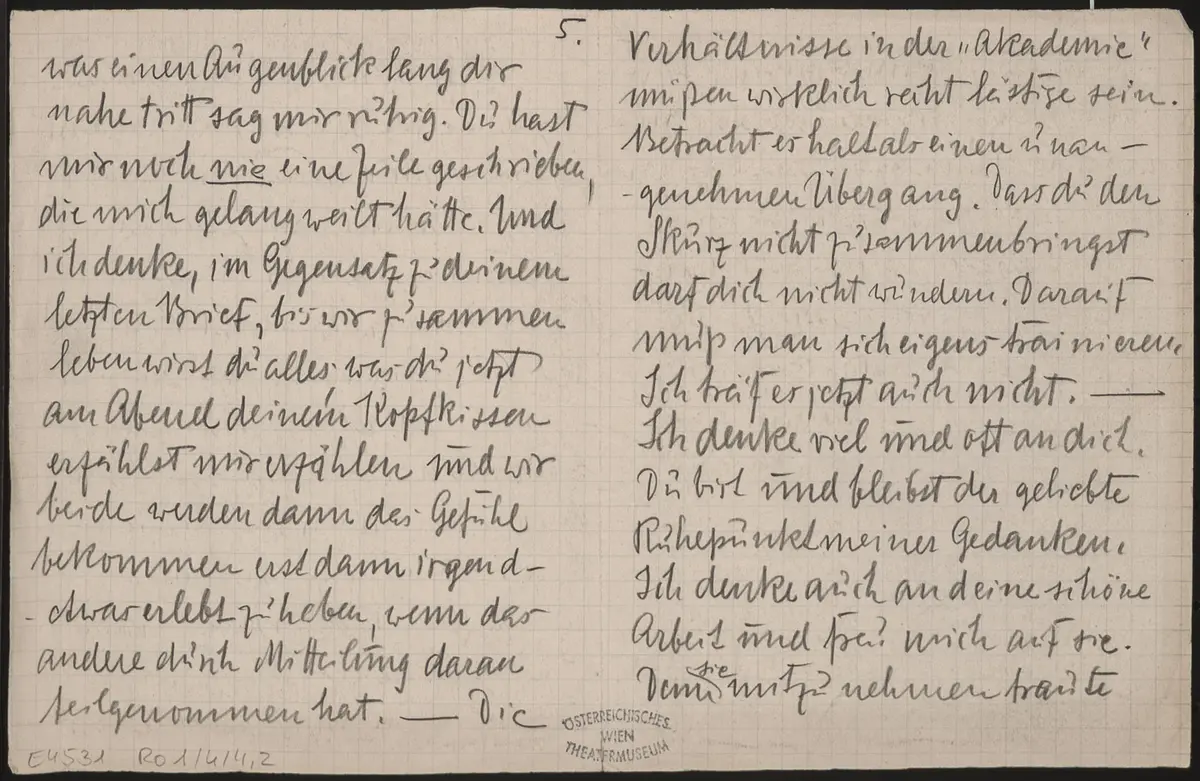 5.
was einen Augenblick lang dir
nahe tritt sag mir ruhig. Du hast
mir noch nie eine Zeile geschrieben,
die mich gelangweilt hätte. Und
ich denke, im Gegensatz zu deinem
letzten Brief, bis wir zusammen
leben wirst du alles was du jetzt
am Abend deinem Kopfkissen
erzählst mir erzählen und wir
beide werden dann das Gefühl
bekommen erst dann irgend-
-etwas erlebt zu haben, wenn das
andere durch Mitteilung daran
teilgenommen hat. — Die
Verhältnisse in der „Akademie"
müßen wirklich recht lästige sein.
Betracht es halt als einen unan-
-genehmen Übergang. Dass du den
Skurz nicht zusammenbringst
darf dich nicht wundern. Darauf
muß man sich eigens trainieren.
Ich träf es jetzt auch nicht. —
Ich denke viel und oft an dich.
Du bist und bleibst der geliebte
Ruhepunkt meiner Gedanken.
Ich denke auch an deine schöne
Arbeit und freu mich auf sie.
Denn sie mitzunehmen traute
ÖSTERREICHISCHES
WIEN
THEATERMUSEUM
E4531 RO 1/4/4,2